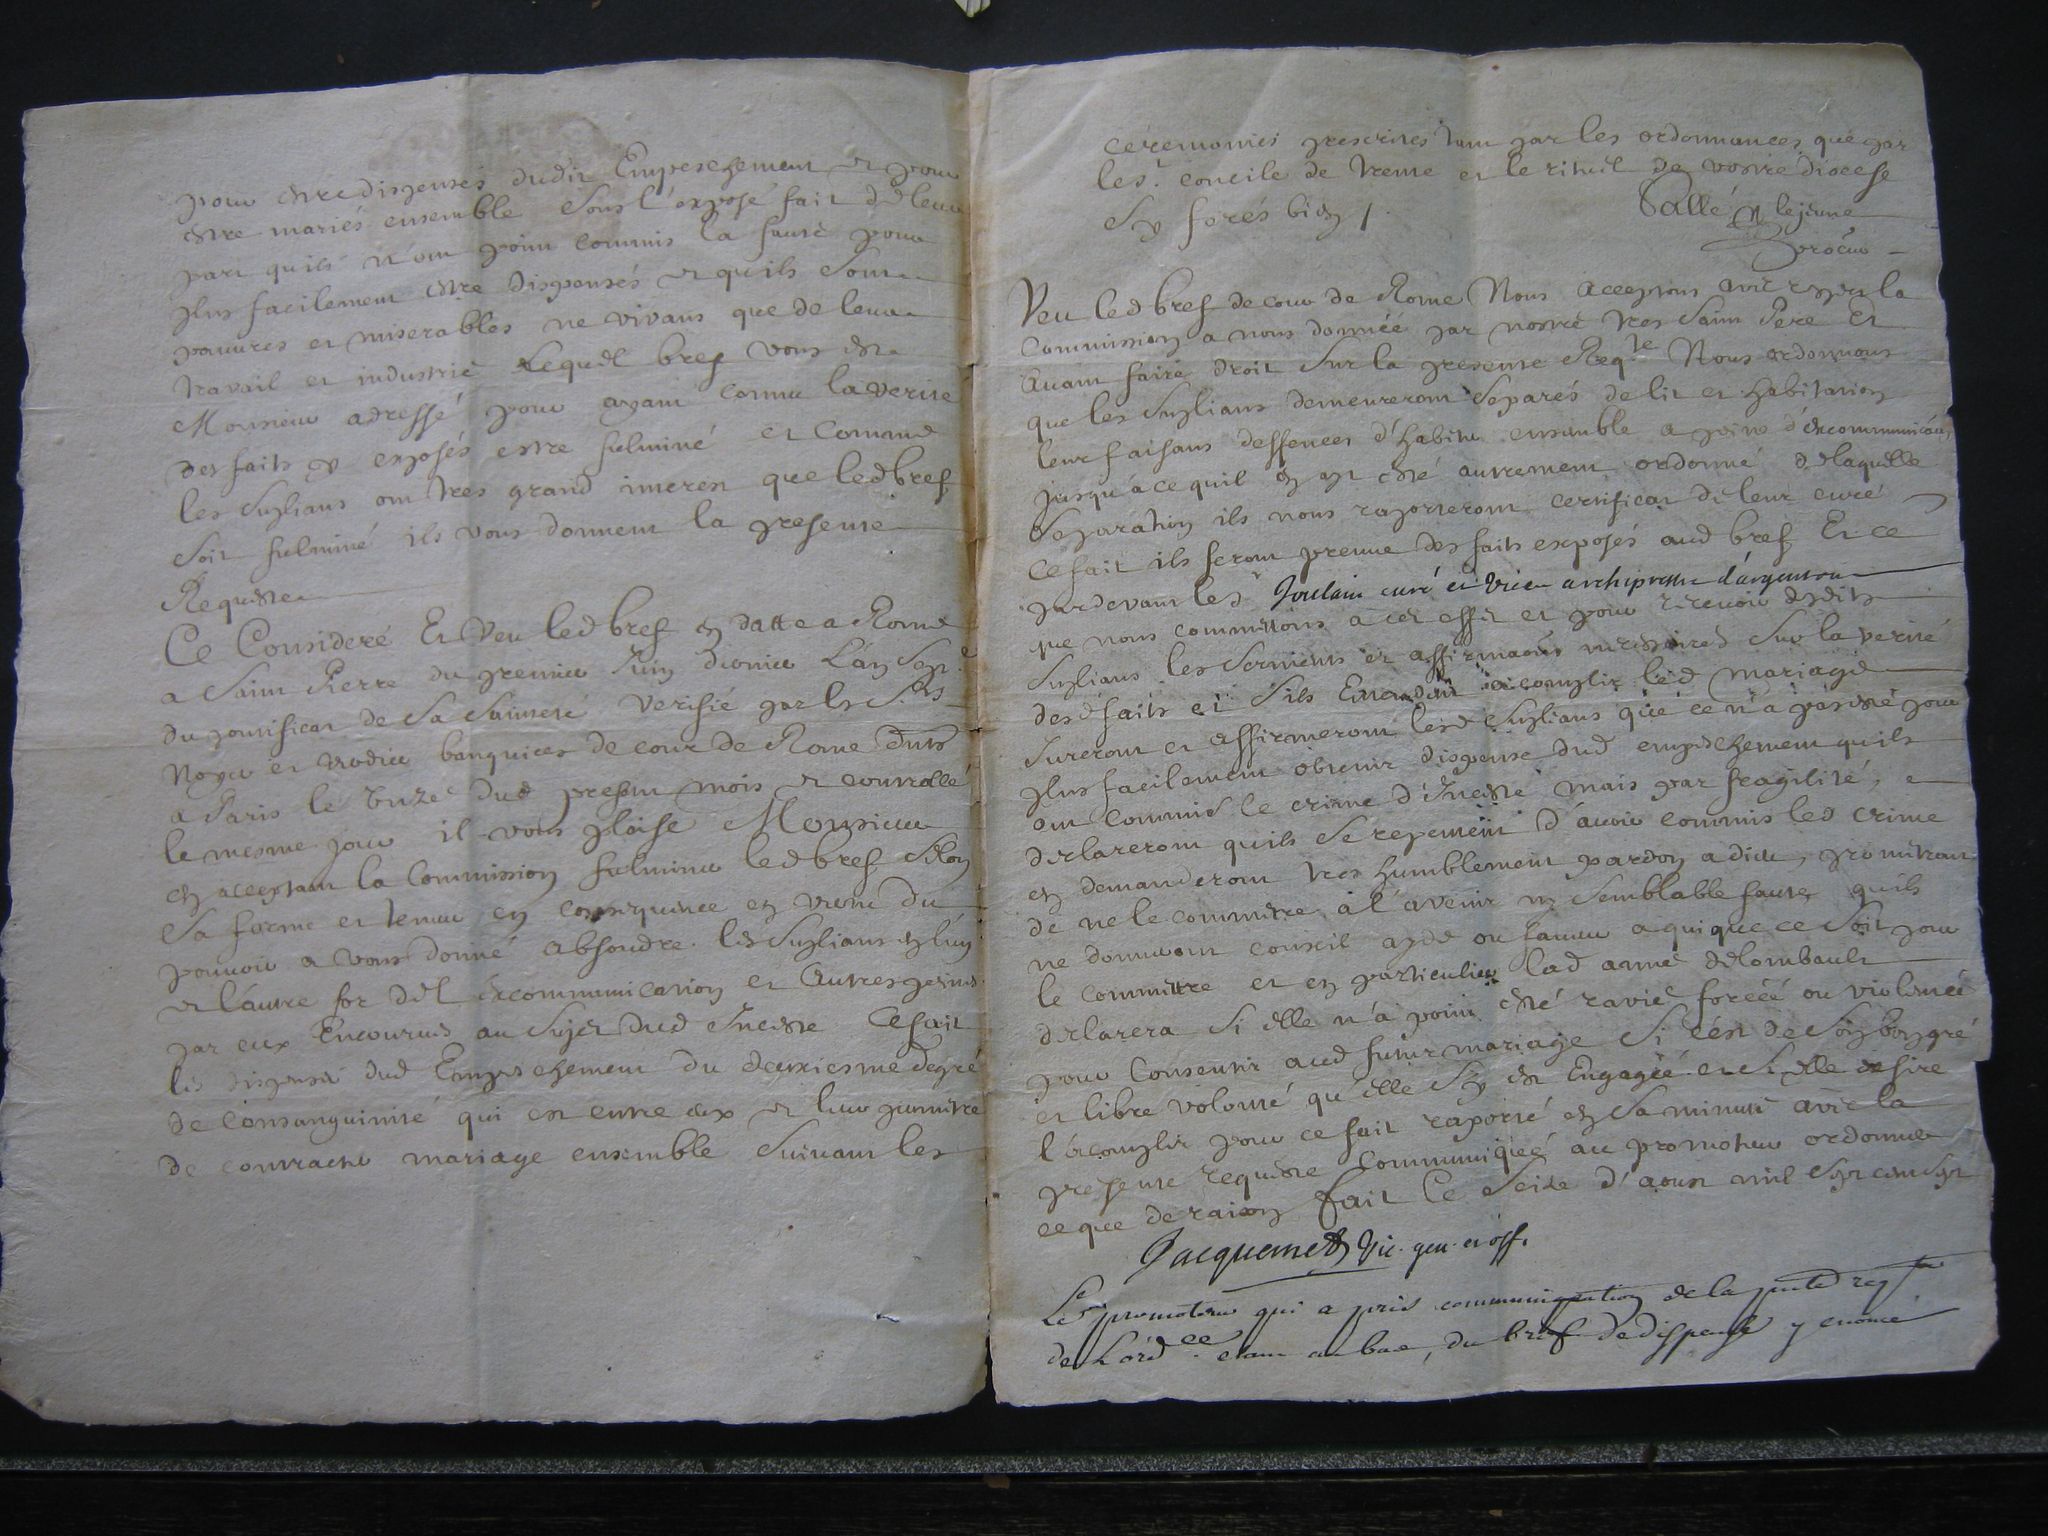 pour estre dispensés dudit Empeschement et pour
estre mariés ensemble Sous l'exposé fait de leur
part quils n'ont point commis la faute pour
plus facilement estre dispensés et quils sont
pauvres et miserables ne vivans que de leur
travail et industrie Lequel bref vous est
Monsieur adressé pour ayant connu la verité
des faits y exposés estre fulminé et comme
les Suplians ont tres grand interest que led bref
soit fulminé ils vous donnent la presente
Requeste
Ce Consideré Et Veu led bref en datte a Rome
a Saint Pierre du premier Juin dernier L'an Sept.e
du pontificat de Sa Sainteté Verifié par les S.rs
Noyer et banquiers de cour de Rome
a Paris le unze dud present mois et controllé
le mesme jour il vous plaise Monsieur
en acceptant la Commission fulminer led bref selon
Sa forme et teneur en consequence en vertu du
pouvoir a vous donné absoudre les Suplians en l'un
et l'autre for de l'excommunication et autres peines
par eux Encourues au Sujet dud Inceste Ce fait
les dispenser dud Empeschement du deuxiesme degré
de consanguinité qui est entre eux et leur permettre
de contracter mariage ensemble Suivant les
ceremonies prescrites tant par les ordonnances que par
le st concile de trente et le rituel de vostre diocese
Sy ferés bien /. Sallé lejeune
procur
Veu led bref de cour de Rome Nous acceptons avec respect la
Commission a nous donnée par nostre tres Saint Pere et
Avant faire droit Sur la presente Req.te Nous ordonnons
que les Suplians demeureront Séparés de lit et habitation
leur faisans deffences d'habiter ensemble a peine d'excommunicaon
jusqu'a ce quil en ayt esté autrement ordonné de laquelle
Separation ils nous raporteront certificat de leur curé
Ce fait ils feront preuve des faits exposés aud bref Et ce
pardevant le sr Joulain curé et vice archiprestre d'argenton
que nous committons a cet effet et pour recevoir desdits
Suplians les Serments et affirmaons necessaires Sur la verité
desd faits et Sils Entendent accomplir led mariage
Jureront et affirmeront lesd Suplians que ce n'a pas esté pour
plus facilement obtenir dispense dud empeschement quils
ont commis le crime d'Inceste mais par fragilité,
declareront quils se repentent d'avoir commis led crime
en demanderont tres humblement pardon a dieu, promettront
de ne le commettre a l'avenir ny Semblable faute, quils
ne donneront conseil ayde ou faveur a qui que ce soit pour
le commettre et en particulier lad anne delombault
declarera Si elle n'a point esté ravie forcée ou violentée
pour Consentir aud futur mariage Si c'est de son bon gré
et libre volonté qu'elle Sy est Engagée et Si elle desire
l'accomplir pour ce fait raporté en Sa minute avec la
presente requeste Communiquée au promoteur ordonner
ce que de raison Fait Ce Seize d'aoust mil Sept cent Sept
Jacquemet Vic. gen. et off.
Le promoteur qui a pris communication de la pnte req.te
de L'ord.ce etant au bas, du bref de dispense y enoncé